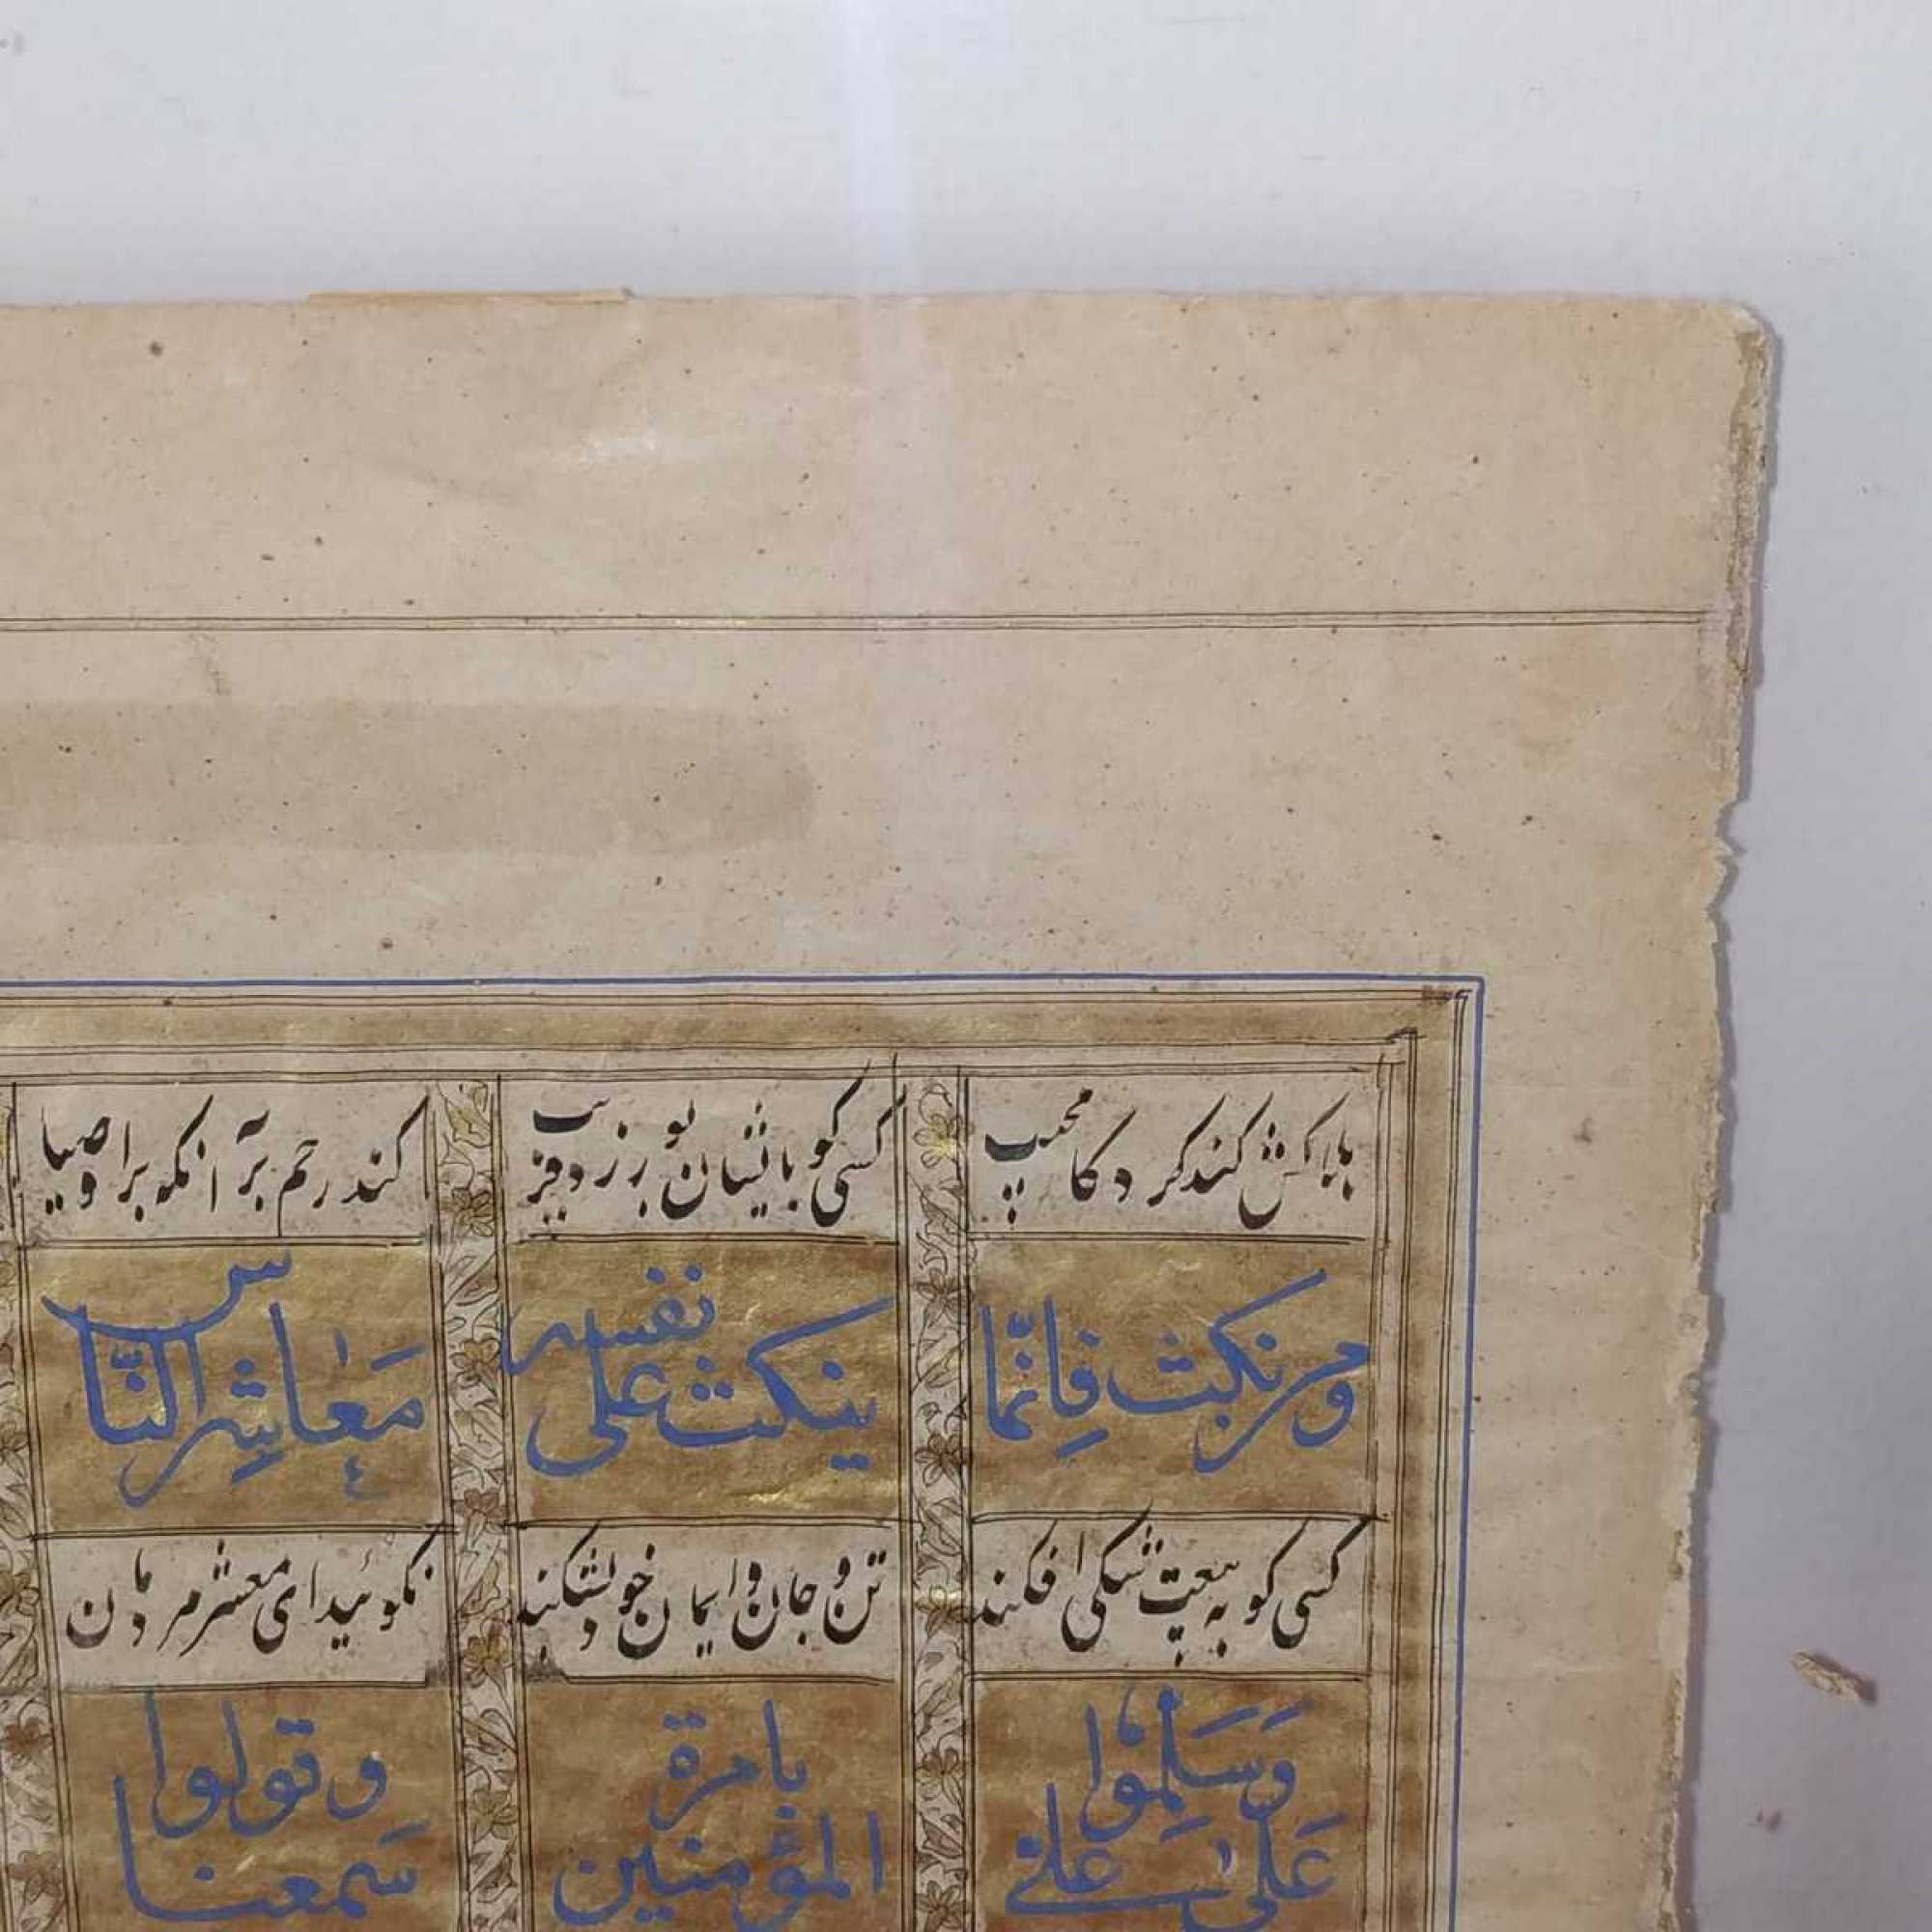 هلاکش کند کردکار مجیب کسی کو بایشان نورزد فریب کند رحم بر آنکه بر اوصیا
ومن نکث فإنّما ینکث علی نفسه مَعاشِر النّاس
کسی کو به بیعت شکی افکند تن و جان و ایمان خود بشکند نکوئید ای معشر مردمان
وَسَلِّمُوا بامرة وقولوا
عَلی عَلیّ المؤمنین سَمعنا